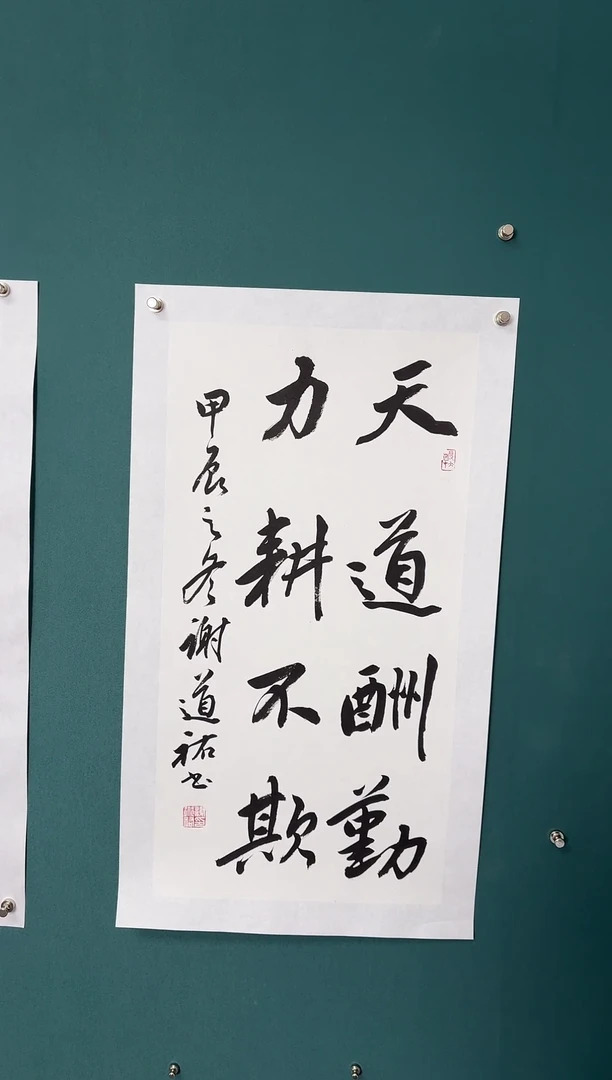 天道酬勤
力耕不欺
甲辰之冬谢道祐书